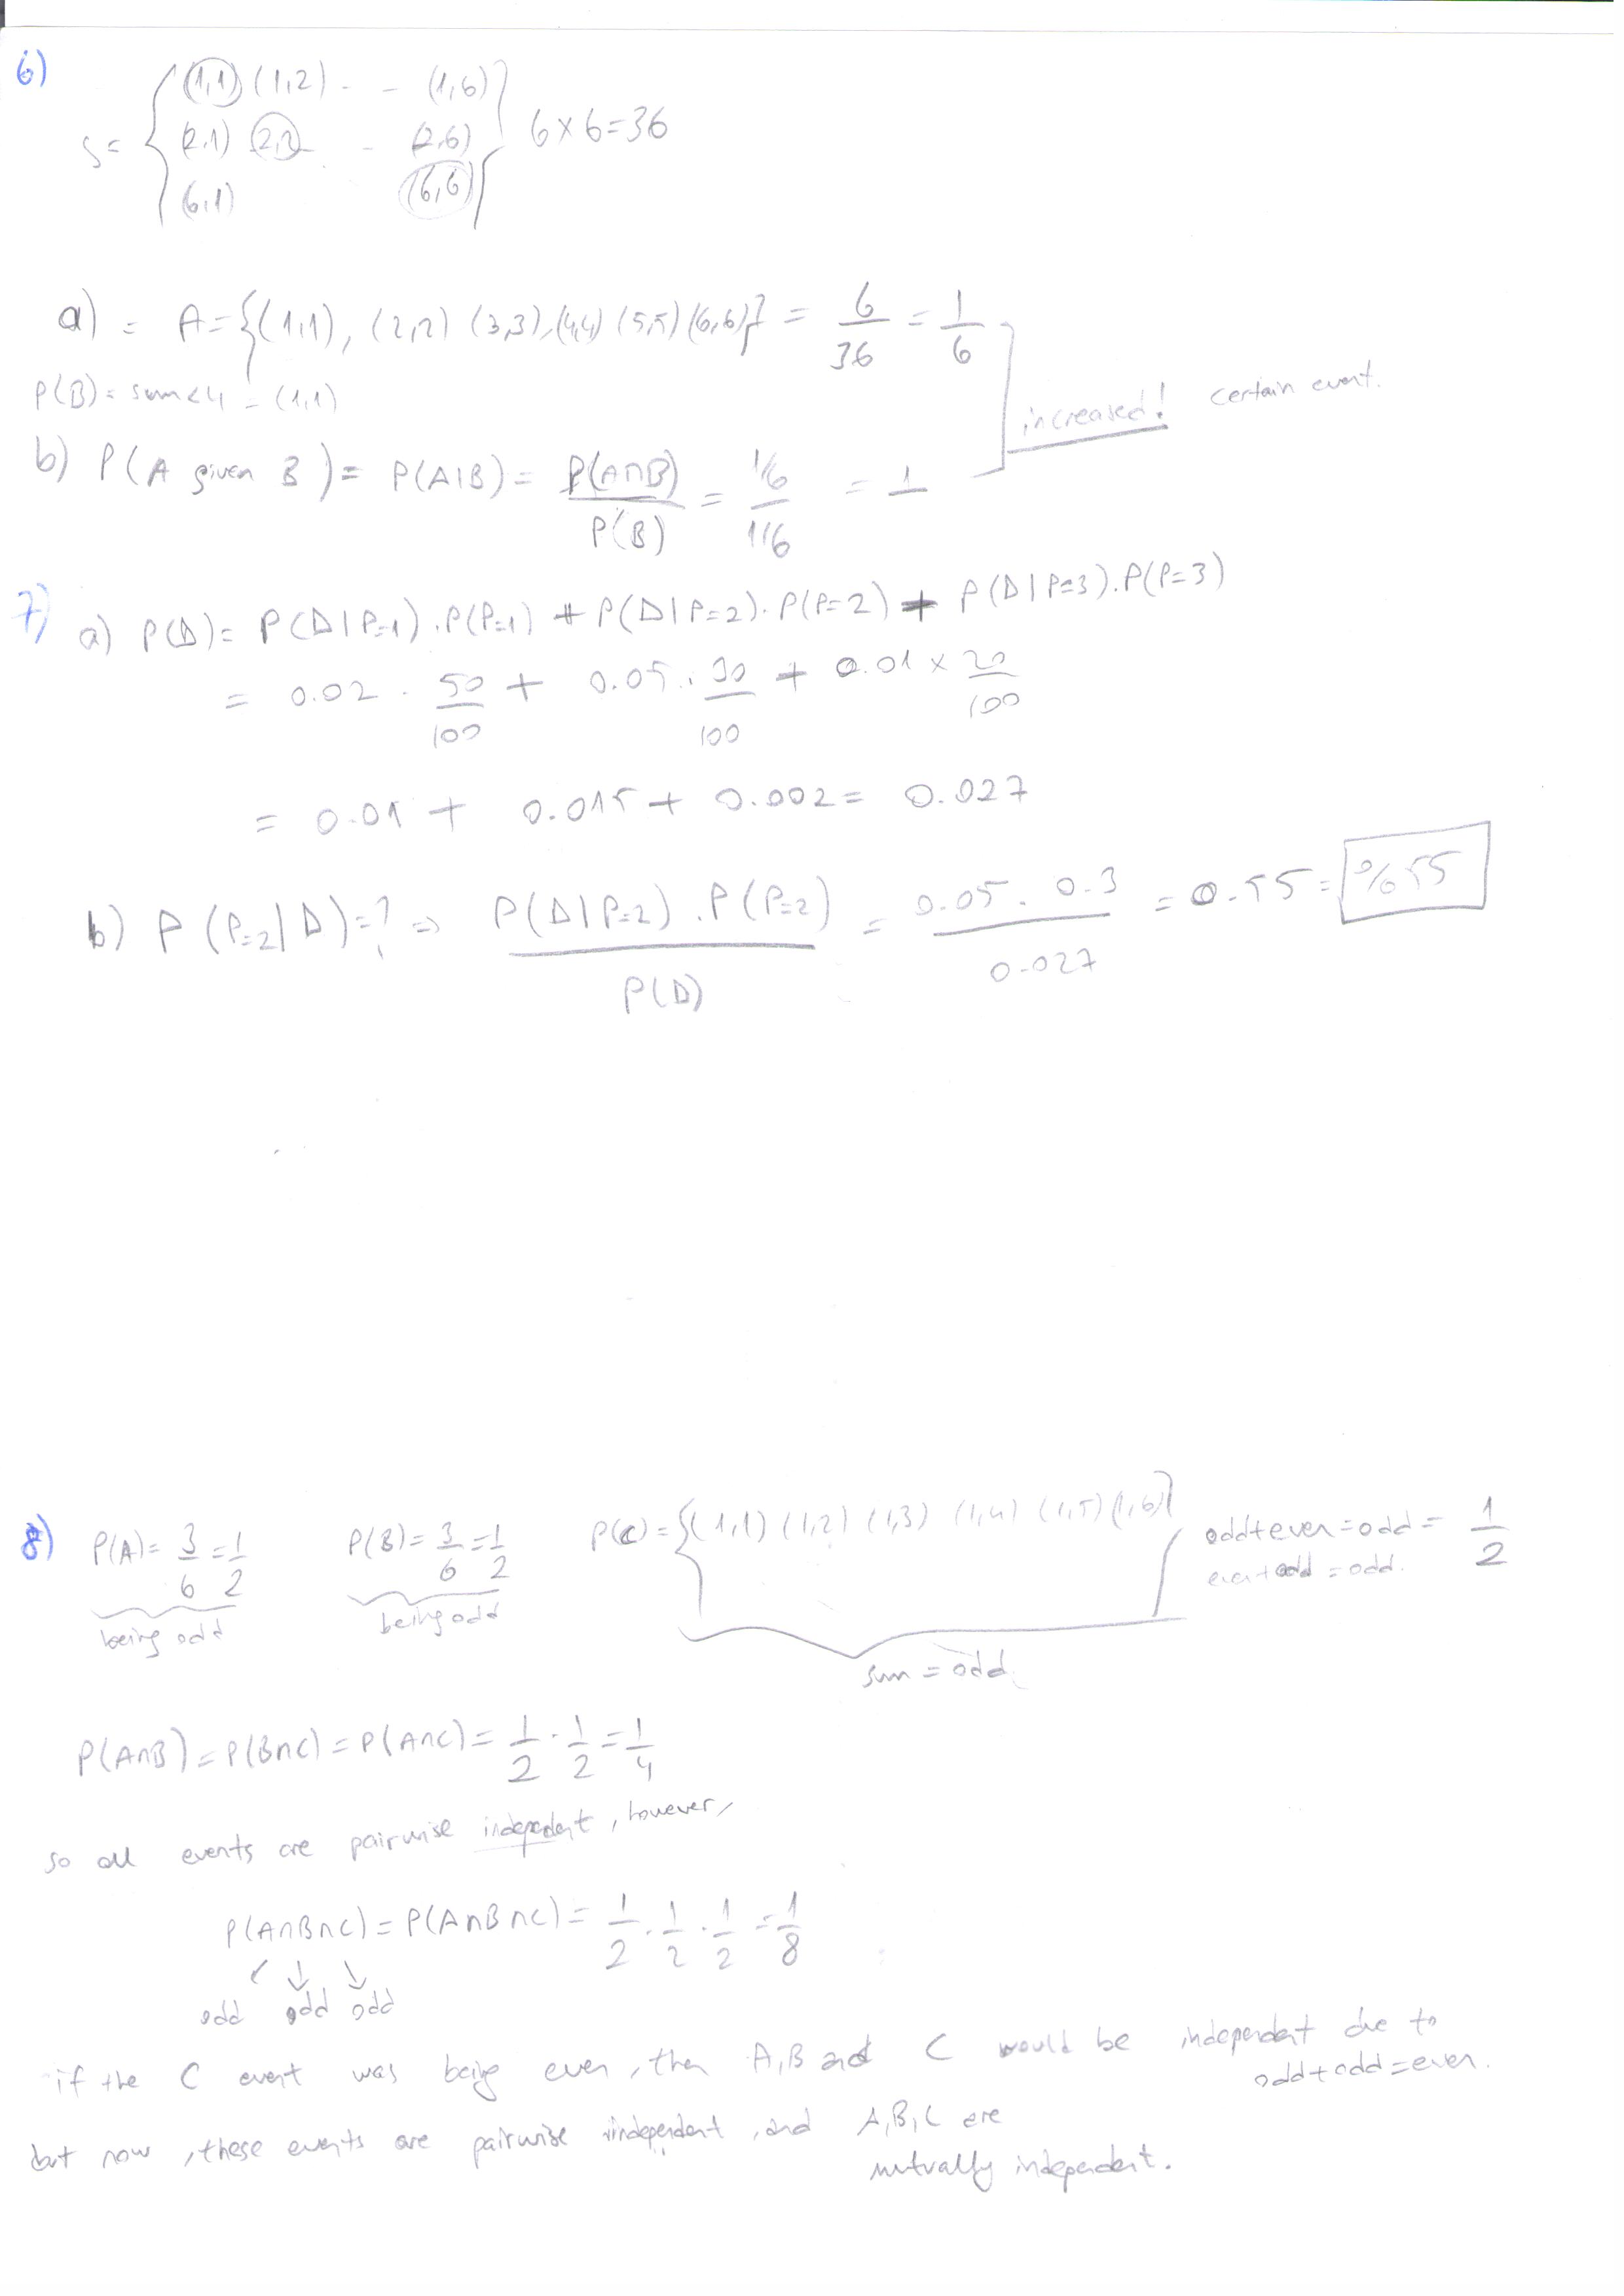 6)
S = { (1,1) (1,2) - - (1,6)
(2,1) (2,2) - (2,6)
(6,1) (6,6) } 6 x 6 = 36
a) = A = {(1,1), (2,2) (3,3), (4,4) (5,5) (6,6)} = 6/36 = 1/6
P(B) = sum < 4 = (1,1)
increased! certain event.
b) P(A given B) = P(A|B) = P(A∩B)/P(B) = 1/6 / 1/6 = 1
7)
a) P(D) = P(D|P=1).P(P=1) + P(D|P=2).P(P=2) + P(D|P=3).P(P=3)
= 0.02 . 50/100 + 0.05 . 30/100 + 0.01 x 20/100
= 0.01 + 0.015 + 0.002 = 0.027
b) P(P=2|D) = ? => P(D|P=2).P(P=2)/P(D) = 0.05 . 0.3/0.027 = 0.55 = %55
8) P(A) = 3/6 = 1/2 P(B) = 3/6 = 1/2 P(C) = {(1,1) (1,2) (1,3) (1,4) (1,5) (1,6)} odd + even = odd = 1/2
even + odd = odd.
being odd being odd
sum = odd
P(A∩B) = P(B∩C) = P(A∩C) = 1/2 . 1/2 = 1/4
so all events are pairwise independent, however,
P(A∩B∩C) = P(A∩B∩C) = 1/2 . 1/2 . 1/2 = 1/8
odd odd odd
if the C event was being even, then A,B and C would be independent due to
odd + odd = even.
but now, these events are pairwise independent, and A,B,C are
mutually independent.